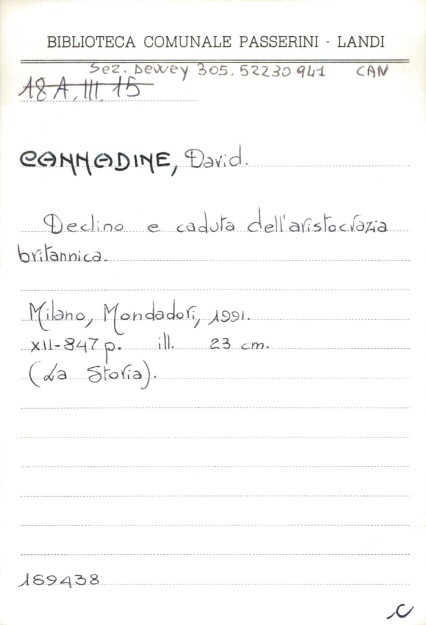 BIBLIOTECA COMUNALE PASSERINI - LANDI
Sez. Dewey 305.52230941 CAN
18 A. III. 15
CANNADINE, David.
Declino e caduta dell'aristocrazia
britannica.
Milano, Mondadori, 1991.
XII-847 p. ill. 23 cm.
(La Storia).
169438
C